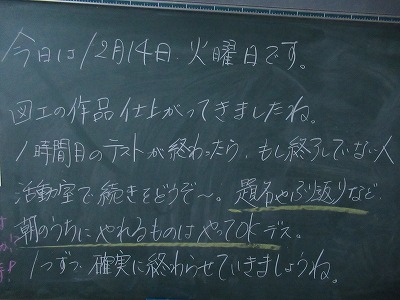 今日は12月14日、火曜日です。
図工の作品仕上がってきましたね。
1時間目のテストが終わったら、もし終了していない人
活動室で続きをどうぞ〜。題名やふり返りなど、
朝のうちにやれるものはやってOKデス。
1つずつ確実に終わらせていきましょうね。